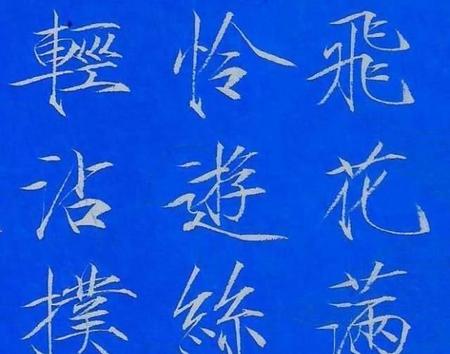 飛花滿
怜遊絲
輕沾撲